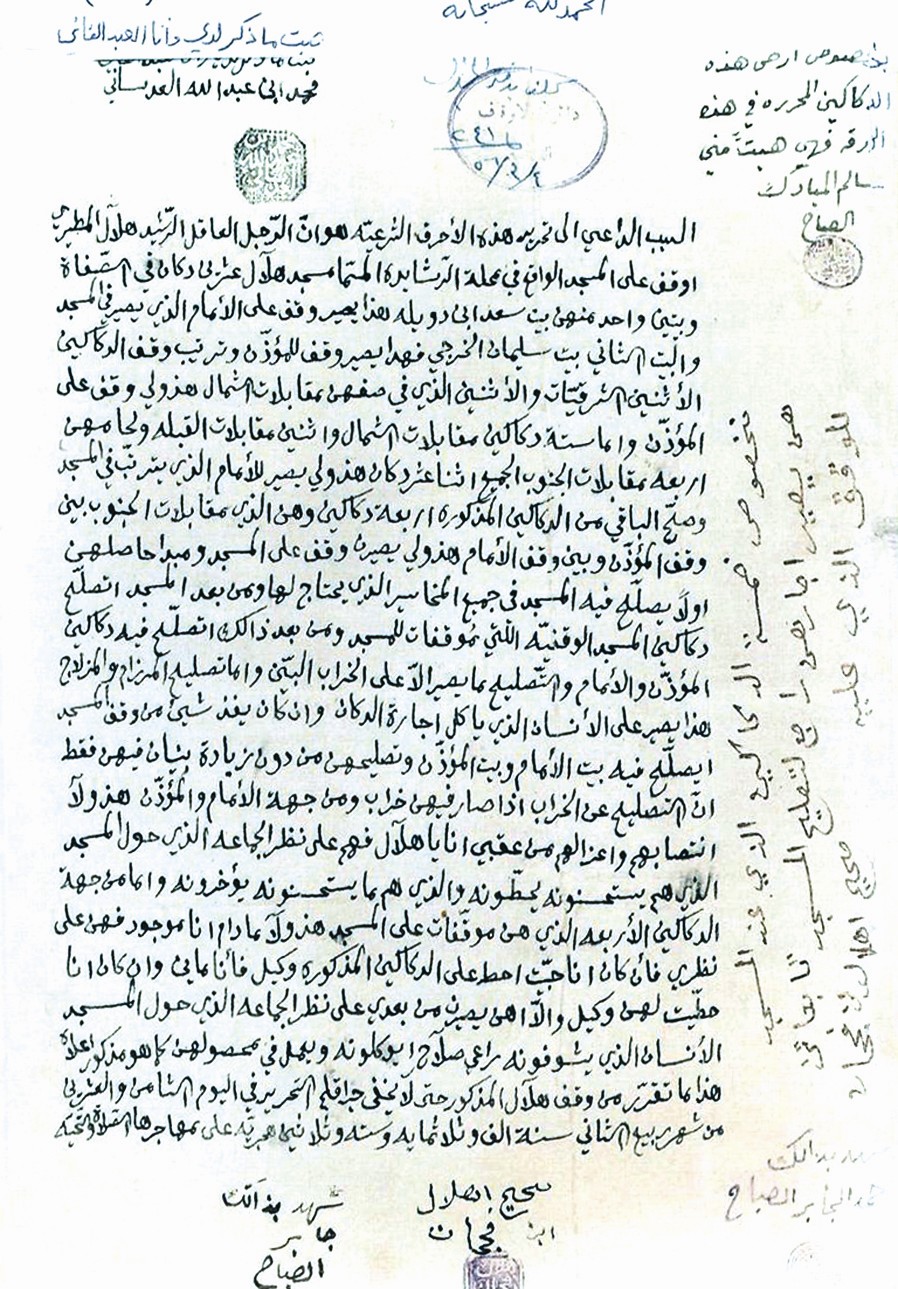 الحمد لله سبحانه
ثبت ما ذكر لدي وانا العبد الفاني
محمد ابن عبدالله العدساني
دائرة الاوقاف
بخصوص ارض هذه
الدكاكين المحرره في هذه
الورقه فهي هبتًا مني
سالم المبارك
الصباح
السبب الداعي الى تحرير هذه الأحرف الشرعيّه هو انّ الرّجل العاقل الرّشيد هلال المطيري
اوقف على المسجد الواقع في محلة الرّشايده المسمّا مسجد هلآل عشرين دكان في الصّفاة
وبيتين واحد منهن بيت سعد ابن دويله هذا يصير وقف على الأمام الذي يصير في المسجد
والبيت الثاني بيت سليمان الخرجي فهذا يصير وقف للمؤذّن وترتيب وقف الدكاكين
الأثنين الشرقيّات والأثنين الذي في صفهن مقابلات الشمال هذولي وقف على
المؤذّن واما ستة دكاكين مقابلات الشمال واثنين مقابلات القبله ولحامهن
اربعه مقابلات الجنوب الجميع اثنا عشر دكان هذولي يصير للأمام الذي يترتّب في المسجد
وصحّ الباقي من الدكاكين المذكوره اربعه دكاكين وهن الذي مقابلات الجنوب بين
وقف المؤذّن وبين وقف الأمام هذولي يصيرن وقف على المسجد ومبدا حاصلهن
اولاً يصلّح فيه المسجد في جميع المخاسير الذي يحتاج لها ومن بعد المسجد اتصلّح
دكاكين المسجد الوقفيّه اللّتي مُوقفات للمسجد ومن بعد ذالك اتصلّح فيه دكاكين
المؤذّن والأمام والتّصليح ما يصير الاّ على الخراب البيّن واما تصليح المرزام والمزلاج
هذا يصير على الأنسان الذي ياكل اجارة الدكان وان كان يفذ شيئ من وقف المسجد
ايصلّح فيه بيت الأمام وبيت المؤذّن وتصليحهن من دون زيادة بنيان فيهن فقط
انّ التصليح عن الخراب اذا صار فيهن خراب ومن جهة الأمام والمُؤذّن هذولآ
انتصابهم واعزالهم من عقبي انا يا هلآل فهم على نظر الجماعه الذي حول المسجد
الذي هم يستحسنونه يحطّونه والذي هم ما يستحسنونه يؤخرونه واما من جهة
الدكاكين الأربعه الذي هن موقّفات على المسجد هذولآ ما دام انا موجود فهن على
نظري فأن كان انا حبّيت احط على الدكاكين المذكوره وكيل فأنا مابي وان كان انا
حطّيت لهن وكيل والاّ اهن يصيرن من بعدي على نظر الجماعه الذي حول المسجد
الأنسان الذي يشوفونه راعي صلاح ايوكلونه ويعمل في محصولهن كما هو مذكور اعلاه
هذا ما تقرّر من وقف هلآل المذكور حتى لا يخفى جرا قلم التحرير في اليوم الثامن والعشرين
من شهر ربيع الثاني سنة الف وثلاثمايه وسته وثلاثين هجريّه على مهاجرها الصّلاة والتّحيّه
صحيح اهلال
ابن فجحان
شهد بذالك
جابر
الصباح
بخصوص خمسة الدكاكين الذي عند المسجد
هن يصير اجارهن الى تصليح المسجد تابعاتن
للوقف الذي عليه
صحيح اهلال فجحان
شهد بذالك
حمد الجابر الصباح